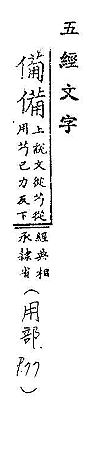 五經文字
僃備 上說文從茍從
用茍己力反下
經典相
承隸省
(用部 P.77)